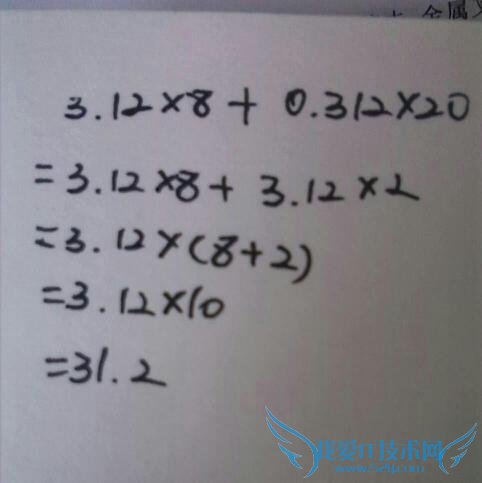 金属
3.12×8+0.312×20
=3.12×8+3.12×2
=3.12×(8+2)
=3.12×10
=31.2
我爱IT技术网